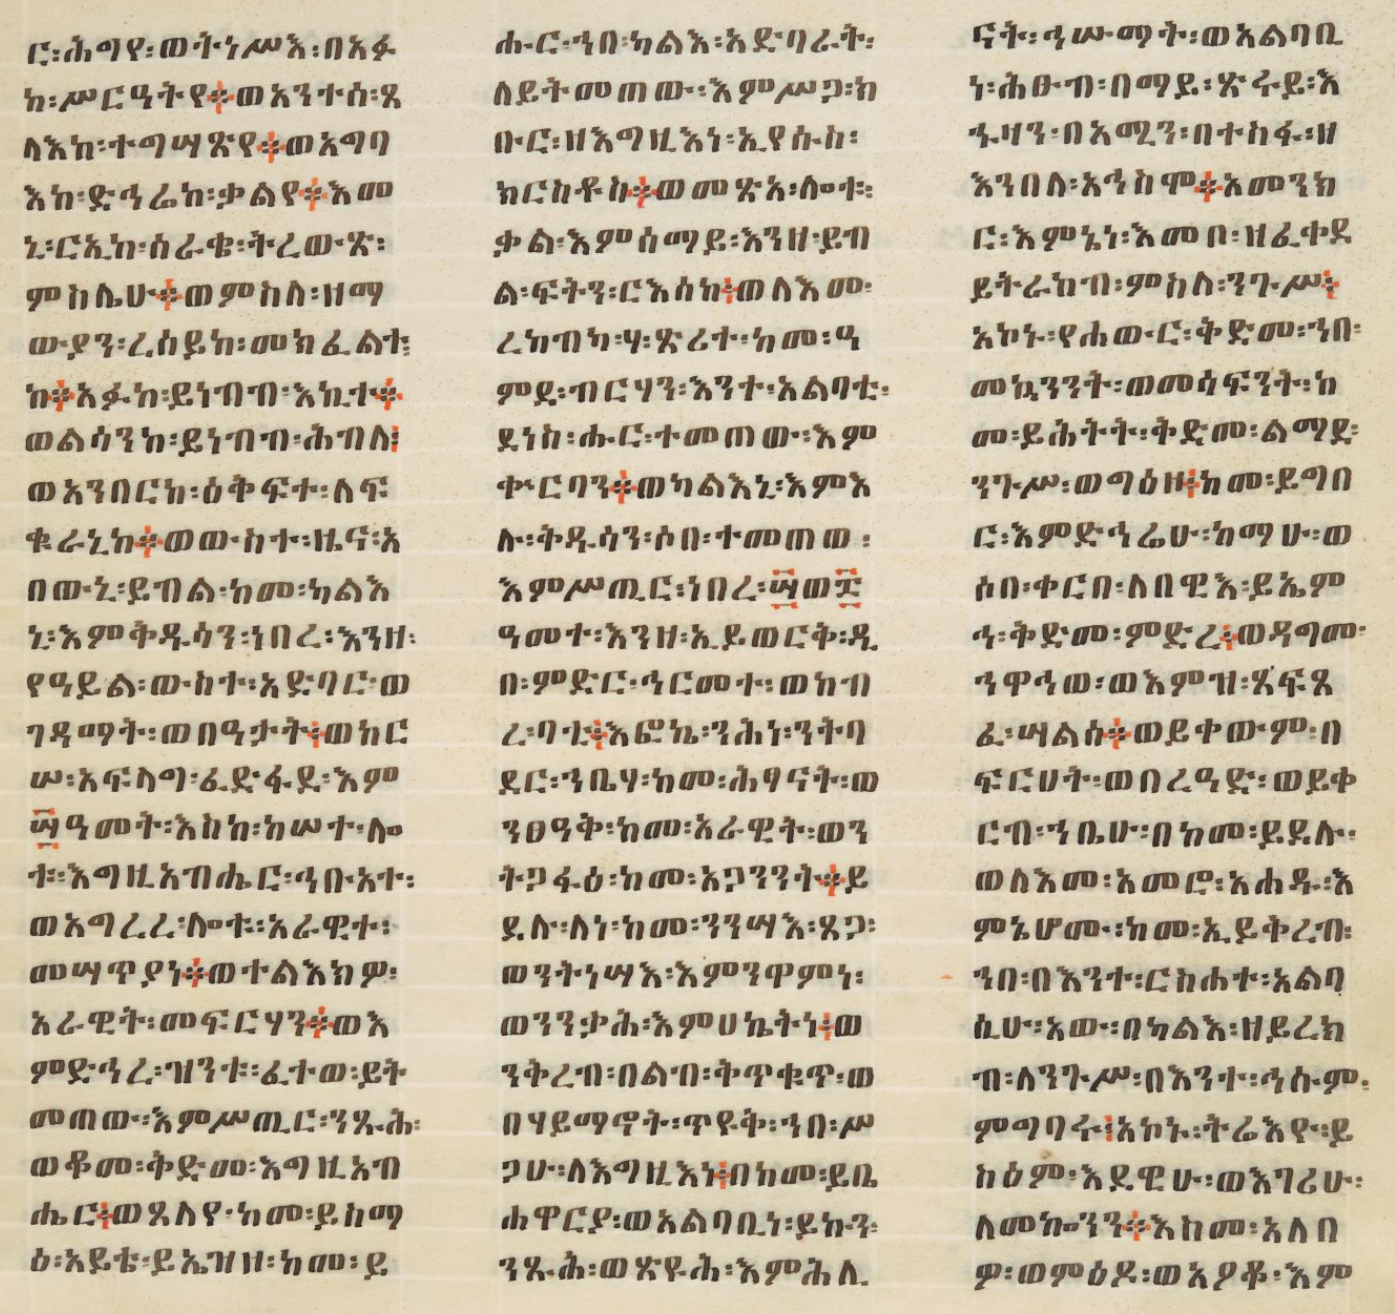 ር፡ሕግየ፡ወትነሥእ፡በአፉ
ከ፡ሥርዓትየ፨ወአንተሰ፡ጸ
ላእከ፡ተግሣጽየ፨ወአግባ
እከ፡ድኅሬከ፡ቃልየ፨እመ
ኒ፡ርኢከ፡ሰራቄ፡ትረውጽ፡
ምስሌሁ፨ወምስለ፡ዘማ
ውያን፡ረሰይከ፡መክፈልተ፡
ከ፨አፉከ፡ይነብብ፡እኪተ፨
ወልሳንከ፡ይነብብ፡ሕብለ፤
ወአንበርከ፡ዕቅፍተ፡ለፍ
ቁራኒከ፨ወውስተ፡ዜና፡አ
በውኒ፡ይብል፡ከመ፡ካልእ
ኒ፡እምቅዱሳን፡ነበረ፡እንዘ፡
የዓይል፡ውስተ፡አድባር፡ወ
ገዳማት፡ወበዓታት፤ወከር
ሠ፡አፍላግ፡ፈድፋደ፡እም
፶ዓመት፡እስከ፡ከሠተ፡ሎ
ቱ፡እግዚአብሔር፡ኅቡአተ፡
ወአግረረ፡ሎቱ፡አራዊተ፡
መሣጥያነ፨ወተልእክዎ፡
አራዊት፡መፍርሃን፨ወእ
ምድኅረ፡ዝንቱ፡ፈተወ፡ይት
መጠው፡እምሥጢር፡ንጹሕ፡
ወቆመ፡ቅድመ፡እግዚአብ
ሔር፤ወጸለየ፡ከመ፡ይስማ
ዕ፡አይቴ፡ይኤዝዘ፡ከመ፡ይ
ሑር፡ኀበ፡ካልእ፡አድባራት፡
ለይትመጠው፡እምሥጋ፡ክ
ቡር፡ዘእግዚእነ፡ኢየሱስ፡
ክርስቶስ፨ወመጽአ፡ሎቱ፡
ቃል፡እምሰማይ፡እንዘ፡ይብ
ል፡ፍትን፡ርእሰከ፤ወለእመ፡
ረከብካ፡ሃ፡ጽሪተ፡ከመ፡ዓ
ምደ፡ብርሃን፡እንተ፡አልባቲ፡
ደነስ፡ሑር፡ተመጠው፡እም
ቍርባን፨ወካልእኒ፡እምእ
ሉ፡ቅዱሳን፡ሶበ፡ተመጠወ፡
እምሥጢር፡ነበረ፡፶ወ፰
ዓመተ፡እንዘ፡ኢይወርቅ፡ዲ
በ፡ምድር፡ኅርመተ፡ወከብ
ረ፡ባቲ፤እፎኬ፡ንሕነ፡ንትባ
ደር፡ኀቤሃ፡ከመ፡ሕፃናት፡ወ
ንፀዓቅ፡ከመ፡አራዊት፡ወን
ትጋፋዕ፡ከመ፡አጋንንት፨ይ
ደሉ፡ለነ፡ከመ፡ንንሣእ፡ጸጋ፡
ወንትነሣእ፡እምንዋምነ፡
ወንንቃሕ፡እምሀኬትነ፤ወ
ንቅረብ፡በልብ፡ቅጥቁጥ፡ወ
በሃይማኖት፡ጥዩቅ፡ኀበ፡ሥ
ጋሁ፡ለእግዚእነ፤በከመ፡ይቤ
ሐዋርያ፡ወአልባቢነ፡ይኩን፡
ንጹሕ፡ወጽዩሕ፡እምሕሊ
ናት፡ኅሡማት፡ወአልባቢ
ነ፡ሕፁብ፡በማይ፡ጽሩይ፡እ
ኁዛን፡በአሚን፡በተስፋ፡ዘ
እንበለ፡አኅስሞ፨አመንክ
ር፡እምኔነ፡እመቦ፡ዘፈቀደ
ይትራከብ፡ምስለ፡ንጉሥ፤
አኮኑ፡የሐውር፡ቅድመ፡ኀበ፡
መኳንንት፡ወመሳፍንት፡ከ
መ፡ይሕትት፡ቅድመ፡ልማደ፡
ንጉሥ፡ወግዕዘ፤ከመ፡ይግበ
ር፡እምድኅሬሁ፡ከማሁ፡ወ
ሶበ፡ቀርበ፡ለበዊእ፡ይኤም
ኅ፡ቅድመ፡ምድረ፤ወዳግመ፡
ኅዋኅወ፡ወእምዝ፡ጸፍጸ
ፈ፡ሣልሰ፨ወይቀውም፡በ
ፍርሀት፡ወበረዓድ፡ወይቀ
ርብ፡ኀቤሁ፡በከመ፡ይደሉ፡
ወለእመ፡አመሮ፡አሐዱ፡እ
ምኔሆሙ፡ከመ፡ኢይቅረብ፡
ኀበ፡በእንተ፡ርስሐተ፡አልባ
ሲሁ፡አው፡በካልእ፡ዘይረክ
ብ፡ለንጉሥ፡በእንተ፡ኅሱም፡
ምግባሩ፤አኮኑ፡ትሬእዮ፡ይ
ከዕም፡እደዊሁ፡ወእገሪሁ፡
ለመኰንን፨እስመ፡አለበ
ዎ፡ወምዕዶ፡ወአዖቆ፡እም